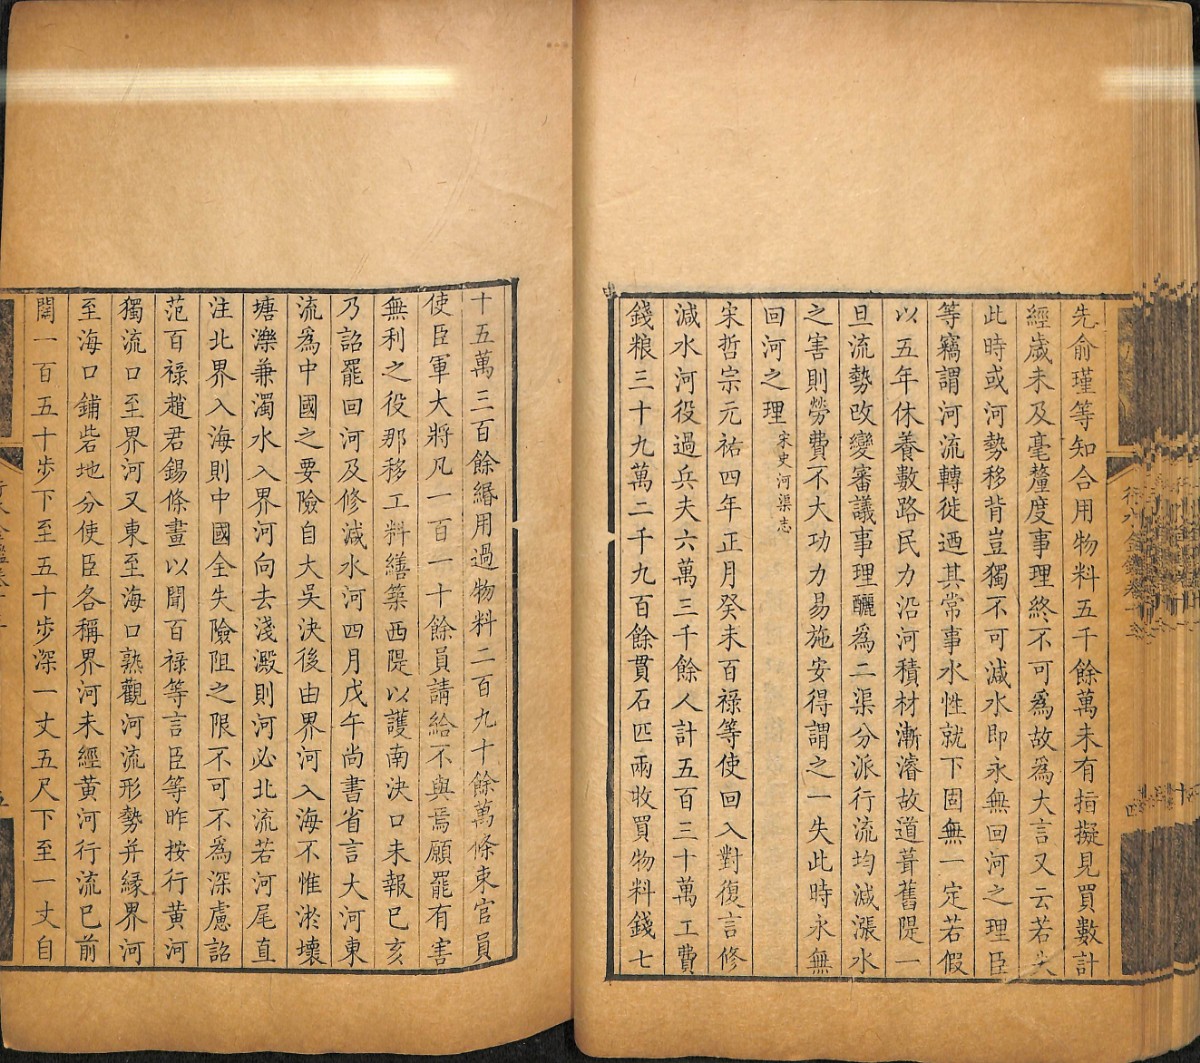 先俞瑾等知合用物料五千餘萬未有指擬見買數計
經歲未及毫釐度事理終不可爲故爲大言又云若失
此時或河勢移背豈獨不可減水即永無回河之理臣
等竊謂河流轉徙迺其常事水性就下固無一定若假
以五年休養數路民力沿河積材漸濬故道葺舊隄一
旦流勢改變審議事理釃爲二渠分派行流均減漲水
之害則勞費不大功力易施安得謂之一失此時永無
回河之理宋史河渠志
宋哲宗元祐四年正月癸未百祿等使回入對復言修
減水河役過兵夫六萬三千餘人計五百三十萬工費
錢粮三十九萬二千九百餘貫石匹兩收買物料錢七
十五萬三百餘緡用過物料二百九十餘萬條束官員
使臣軍大將凡一百一十餘員請給不與焉願罷有害
無利之役那移工料繕築西隄以護南決口未報已亥
乃詔罷回河及修減水河四月戊午尚書省言大河東
流爲中國之要險自大吳決後由界河入海不惟淤壞
塘濼兼濁水入界河向去淺澱則河必北流若河尾直
注北界入海則中國全失險阻之限不可不爲深慮詔
范百祿趙君錫條畫以聞百祿等言臣等昨按行黃河
獨流口至界河又東至海口熟觀河流形勢并緣界河
至海口鋪砦地分使臣各稱界河未經黃河行流已前
闊一百五十步下至五十步深一丈五尺下至一丈自